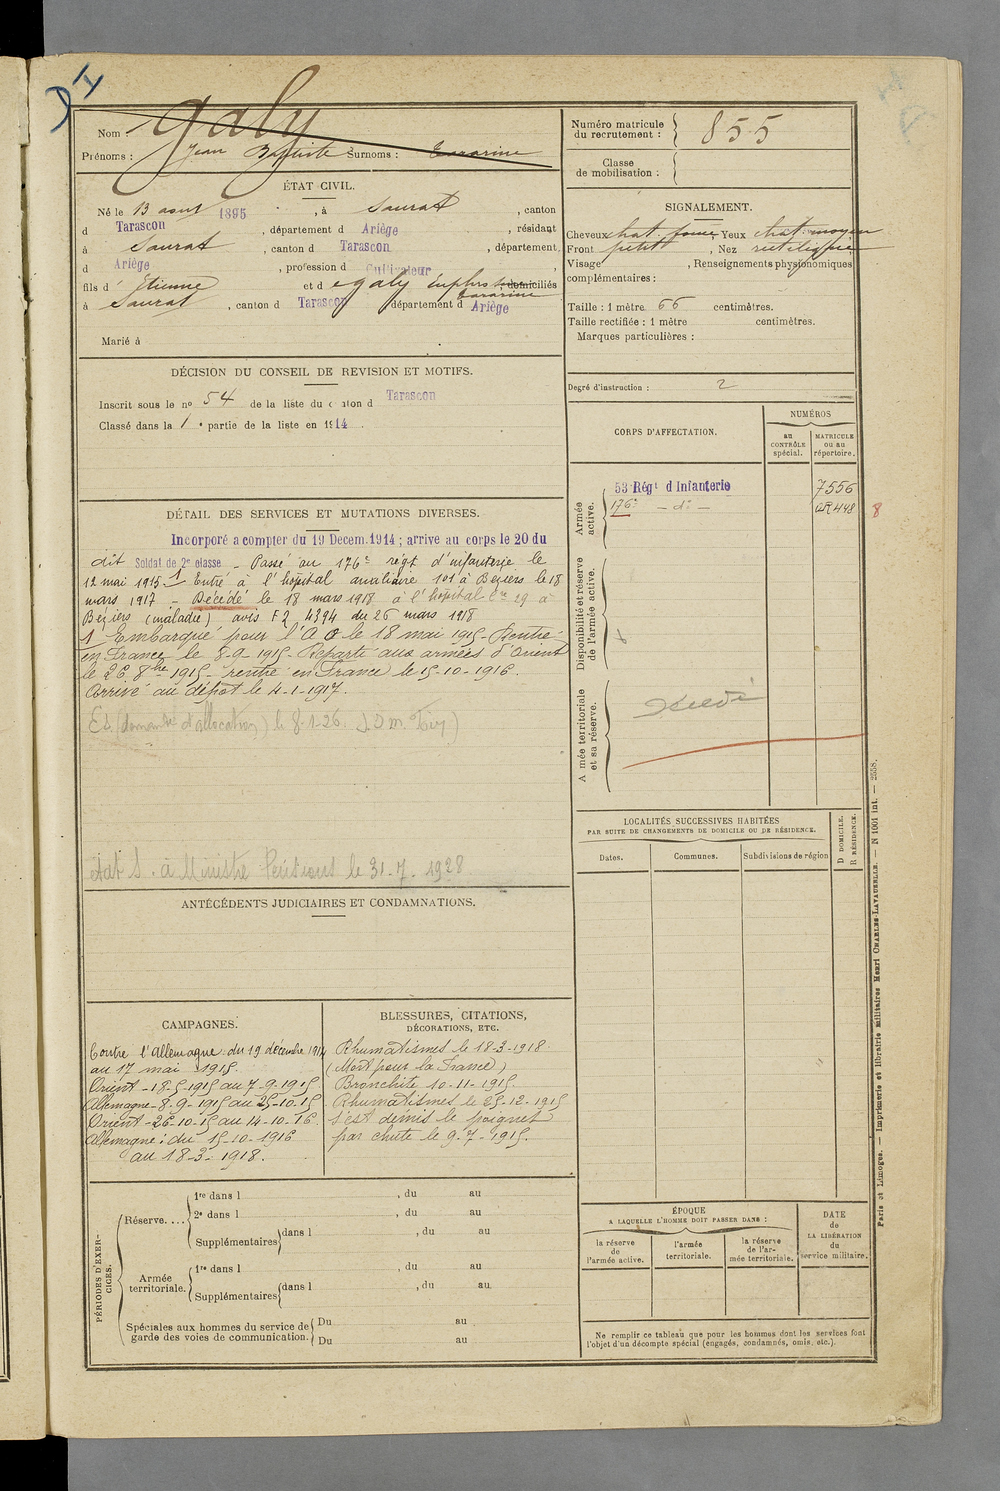 DI
Nom : Galy
Prénoms : Jean Baptiste Surnoms :
ÉTAT CIVIL.
Né le 13 aout 1895, à Saurat, canton
d Tarascon, département d Ariège, résidant
à Saurat, canton d Tarascon, département
d Ariège, profession d Cultivateur,
fils d' Étienne et d e galy domiciliés
à Saurat, canton d Tarascon département d Ariège
Marié à
DÉCISION DU CONSEIL DE REVISION ET MOTIFS.
Inscrit sous le no 54 de la liste du canton d Tarascon
Classé dans la 1e partie de la liste en 1914.
DÉTAIL DES SERVICES ET MUTATIONS DIVERSES.
Incorporé a compter du 19 Decem. 1914 ; arrive au corps le 20 du
dit Soldat de 2e classe _ Passé au 176e régt d'infanterie le
12 mai 1915 1 Entré à l'hôpital auxiliaire 101 à Beziers le 18
mars 1917 _ Décédé le 18 mars 1918 à l'hôpital 29 à
Beziers (maladie) avis F2 4394 du 26 mars 1918
1 Embarqué pour l'A O le 18 mai 1915 - Rentré
en France le 8-9-1915 - Reparti aux armées d'Orient
le 26 8bre 1915 - rentré en France le 15-10-1916.
Arrivé au dépôt le 4-1-1917.
(demande d'allocation) le 8-1-26.
Etat S. à Ministre Pensions le 31-7-1928
ANTÉCÉDENTS JUDICIAIRES ET CONDAMNATIONS.
CAMPAGNES.
Contre l'Allemagne : du 19 décembre 1914
au 17 mai 1915.
Orient - 18-5-1915 au 7-9-1915
Allemagne - 8-9-1915 au 25-10-15
Orient - 26-10-15 au 14-10-16.
Allemagne : du 15-10-1916
au 18-3-1918.
BLESSURES, CITATIONS,
DÉCORATIONS, ETC.
Rhumatismes le 18-3-1918.
(Mort pour la France)
Bronchite 10-11-1915.
Rhumatismes le 25-12-1915
s'est demis le poignet
par chute le 9-7-1915.
PÉRIODES D'EXERCICES.
Réserve....
1re dans l , du au
2e dans l , du au
Supplémentaires dans l , du au
Armée territoriale.
1re dans l , du au
Supplémentaires dans l , du au
Spéciales aux hommes du service de garde des voies de communication.
Du au
Du au
Numéro matricule du recrutement : 855
Classe de mobilisation :
SIGNALEMENT.
Cheveux chat. , Yeux chat. moyen
Front petit , Nez rectiligne
Visage , Renseignements physionomiques
complémentaires :
Taille : 1 mètre 66 centimètres.
Taille rectifiée : 1 mètre centimètres.
Marques particulières :
Degré d'instruction : 2
CORPS D'AFFECTATION.
NUMÉROS
au CONTRÔLE spécial.
MATRICULE ou au répertoire.
Armée active.
53 Régt d Infanterie 7556
176e - do - 448 8
Disponibilité et réserve de l'armée active.
Armée territoriale et sa réserve.
LOCALITÉS SUCCESSIVES HABITÉES
PAR SUITE DE CHANGEMENTS DE DOMICILE OU DE RÉSIDENCE.
Dates. Communes. Subdivisions de région
D DOMICILE.
R RÉSIDENCE.
ÉPOQUE
A LAQUELLE L'HOMME DOIT PASSER DANS :
la réserve de l'armée active.
l'armée territoriale.
la réserve de l'armée territoriale.
DATE
de
LA LIBÉRATION
du
service militaire.
Ne remplir ce tableau que pour les hommes dont les services font
l'objet d'un décompte spécial (engagés, condamnés, omis, etc.).
Paris et Limoges. — Imprimerie et librairie militaires Henri CHARLES-LAVAUZELLE. — N 1001 int. — 2558.